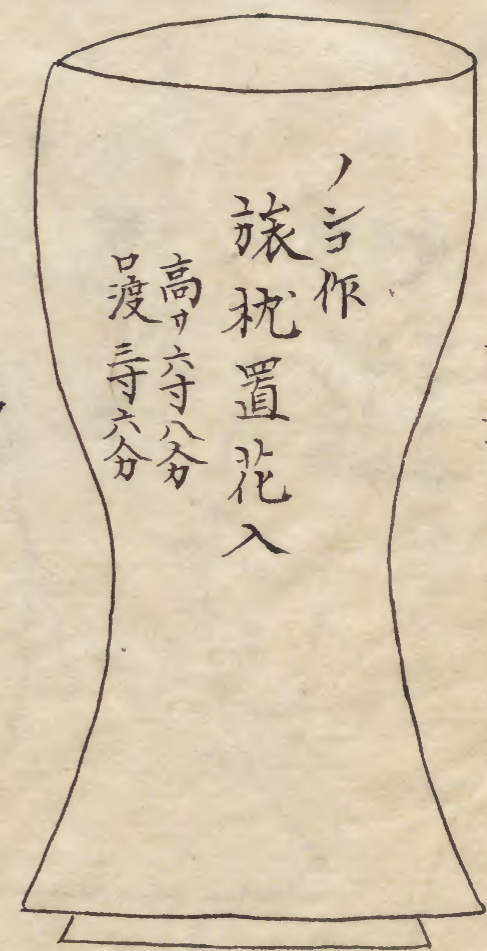 ノンコ作
旅枕置花入
高サ六寸八分
口渡三寸六分